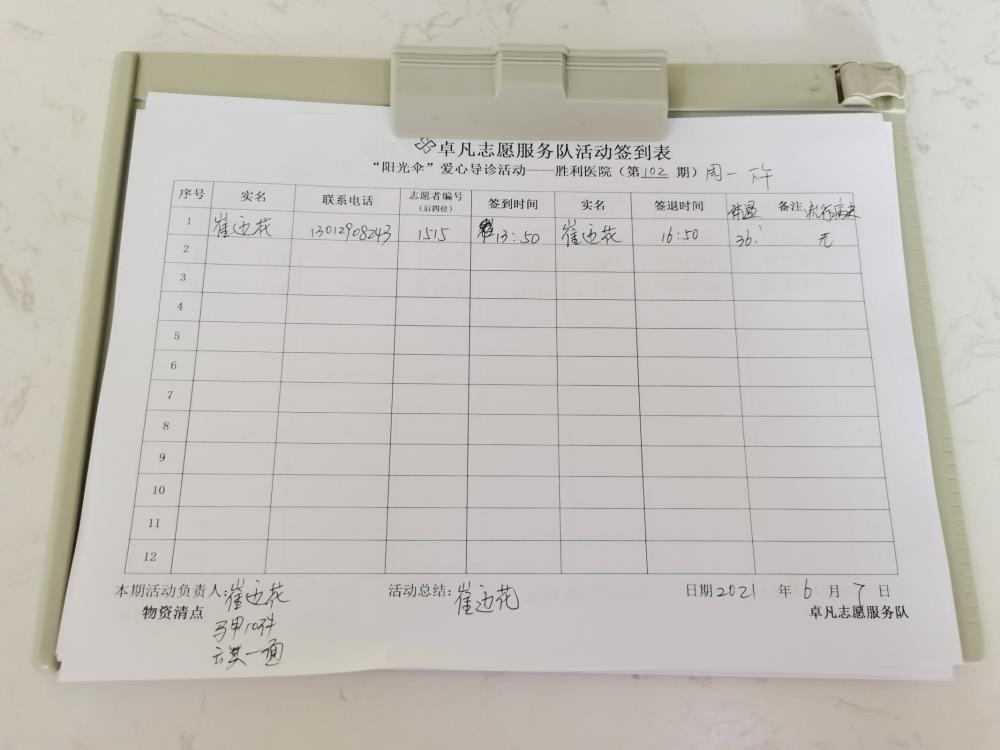 卓凡志愿服务队活动签到表
“阳光伞”爱心导诊活动——胜利医院（第102期）周一 下午
序号 实名 联系电话 志愿者编号（后四位） 签到时间 实名 签退时间 体温 备注 流行病史
1 崔迎花 13012908243 1515 13:50 崔迎花 16:50 36.1 无
2
3
4
5
6
7
8
9
10
11
12
本期活动负责人:崔迎花 活动总结:崔迎花 日期2021年6月7日
物资清点 卓凡志愿服务队
马甲10件
一面